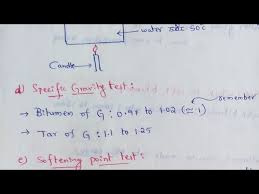 water 50c-50°c
Candle
d) Specific Gravity test:
remember
→ Bitumen of G : 0.97 to 1.02 (≃ 1)
→ Tar of G : 1.1 to 1.25
e) Softening point test: